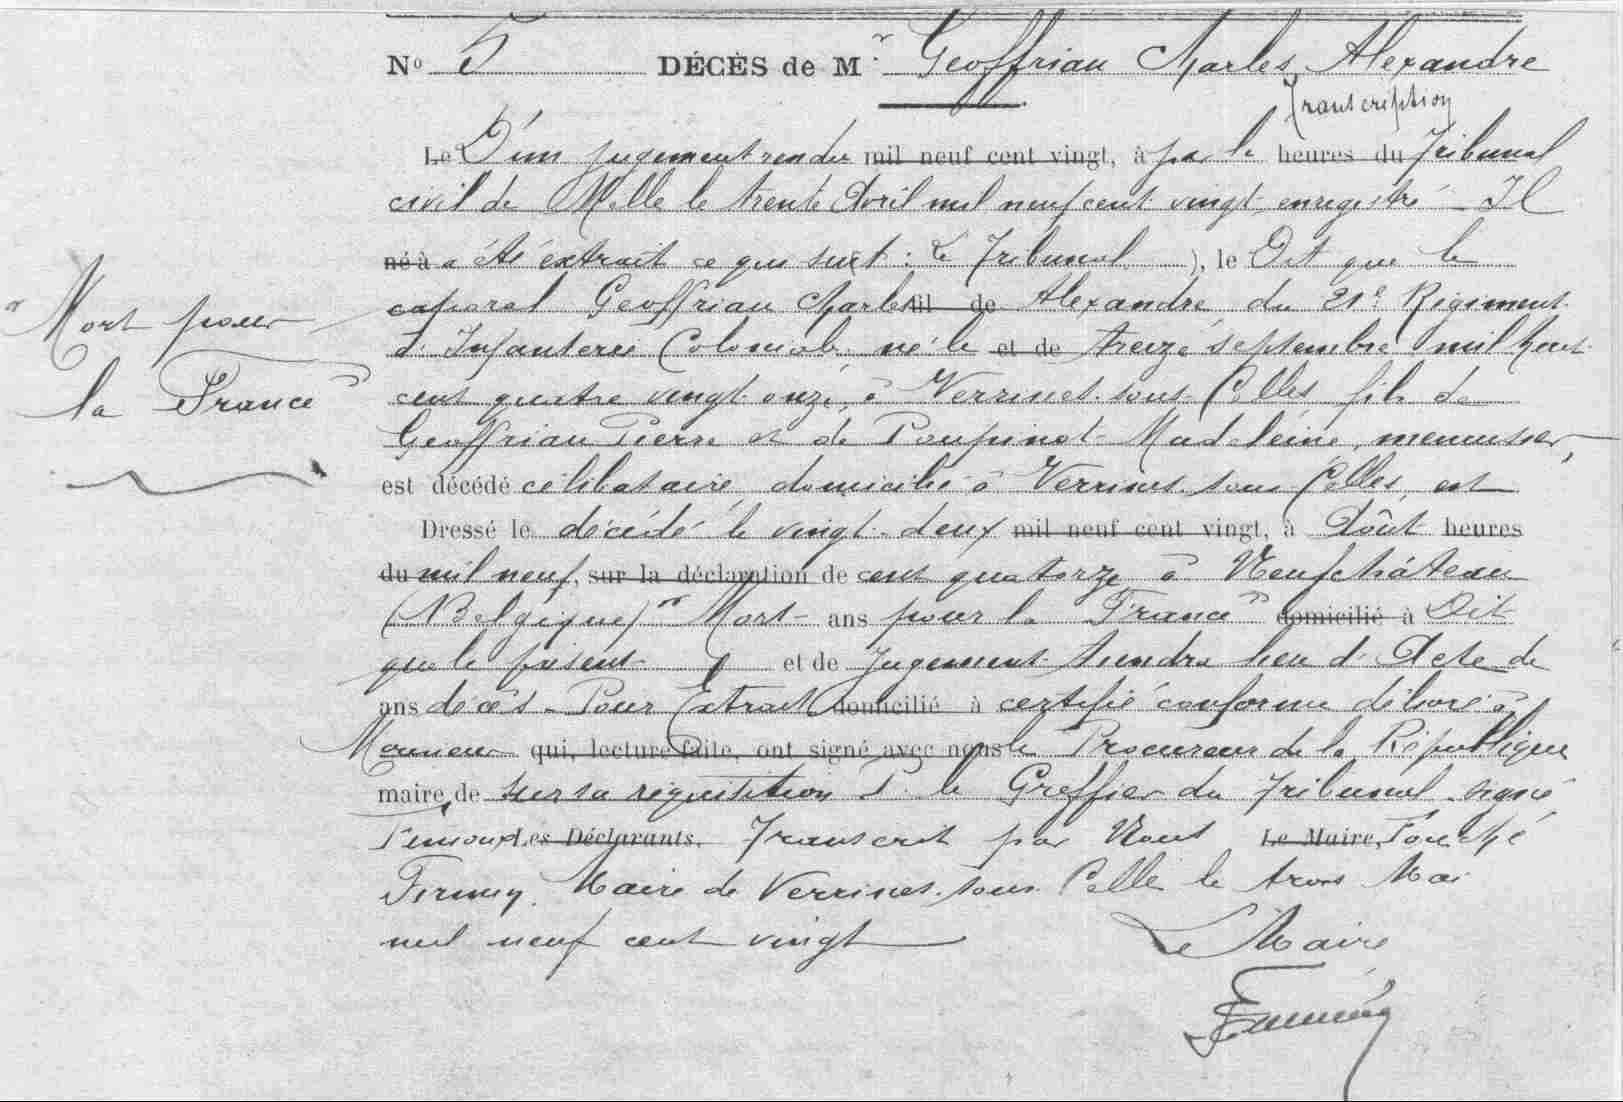 No 5 DÉCÈS de Mr Geoffriau Charles Alexandre
Transcription
Le D'un jugement rendu mil neuf cent vingt, à par le heures du Tribunal
civil de Melle le trente Avril mil neuf cent vingt enregistré Il
né à a été extrait ce qui suit : Le Tribunal ), le Dit que le
caporal Geoffriau Charles fil de Alexandre du 21e Régiment
d'Infanterie Coloniale né le et de treize septembre mil huit
"Mort pour
la France"
cent quatre vingt onze, à Verrines-sous-Celles fils de
Geoffriau Pierre et de Poupinot Madeleine, menuisier,
est décédé célibataire domicilié à Verrines sous Celles, est
Dressé le décédé le vingt-deux mil neuf cent vingt, à Août heures
du mil neuf, sur la déclaration de cent quatorze à Neufchâteau
(Belgique) "Mort ans pour la France" domicilié à Dit
que le présent et de jugement tiendra lieu d'Acte de
ans décès. Pour Extrait domicilié à certifié conforme délivré à
Monsieur qui, lecture faite, ont signé avec nous le Procureur de la République
maire, de sur sa réquisition P. le Greffier du Tribunal signé
Les Déclarants, Transcrit par Nous Le Maire, Fouché
Firmin, Maire de Verrines-sous-Celle le trois Mai
mil neuf cent vingt Le Maire